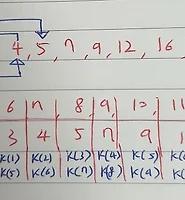 4, 5, 7, 9, 12, 16
6 | 7 | 8 | 9 | 10, | 11
3 | 4 | 5 | 7 | 9 | 1
K(1) K(2) K(3) K(4) K(5)
K(5) K(6) K(7) K(8)